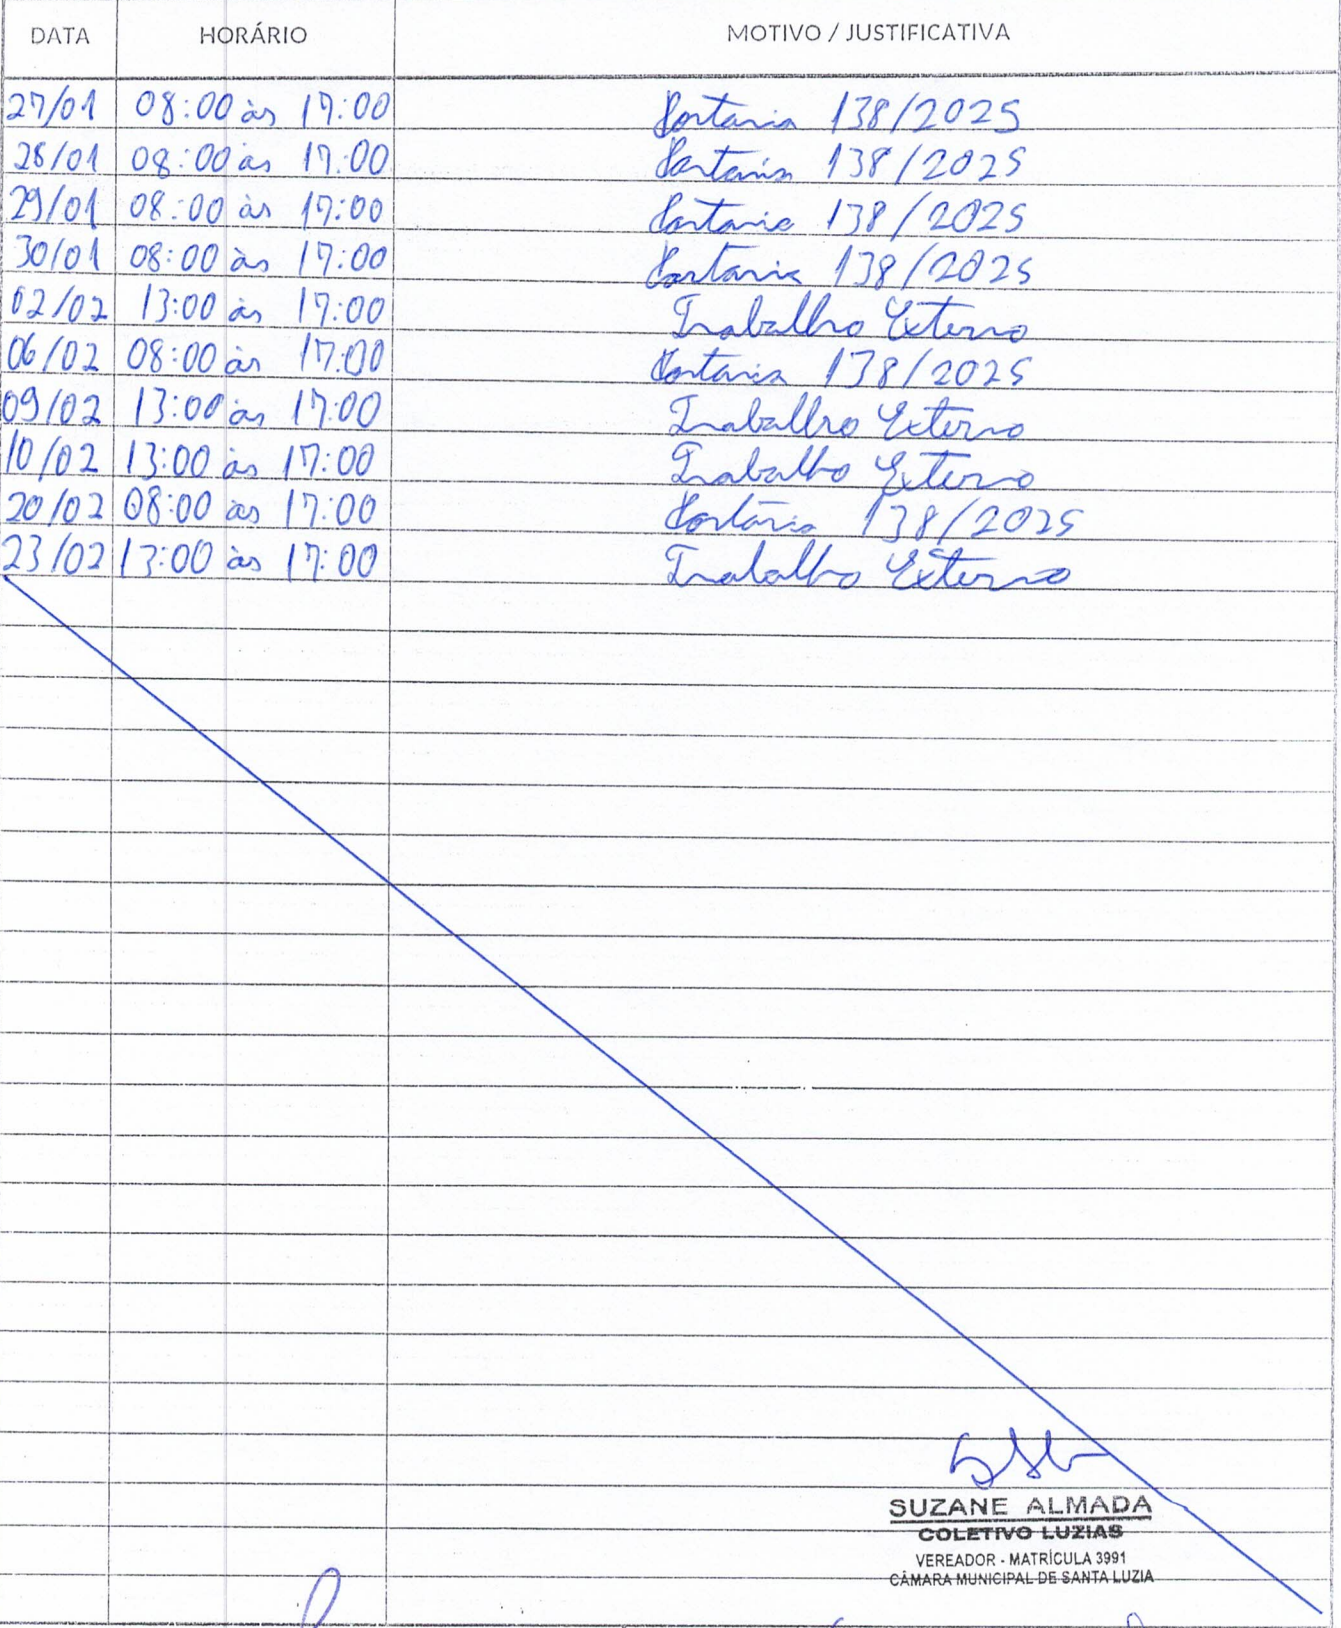 DATA HORÁRIO MOTIVO / JUSTIFICATIVA
27/01 08:00 às 17:00 Portaria 138/2025
28/01 08:00 às 17:00 Portaria 138/2025
29/01 08:00 às 17:00 Portaria 138/2025
30/01 08:00 às 17:00 Portaria 138/2025
02/02 13:00 às 17:00 Trabalho Externo
06/02 08:00 às 17:00 Portaria 138/2025
09/02 13:00 às 17:00 Trabalho Externo
10/02 13:00 às 17:00 Trabalho Externo
20/02 08:00 às 17:00 Portaria 138/2025
23/02 13:00 às 17:00 Trabalho Externo
SUZANE ALMADA
COLETIVO LUZIAS
VEREADOR - MATRÍCULA 3991
CÂMARA MUNICIPAL DE SANTA LUZIA